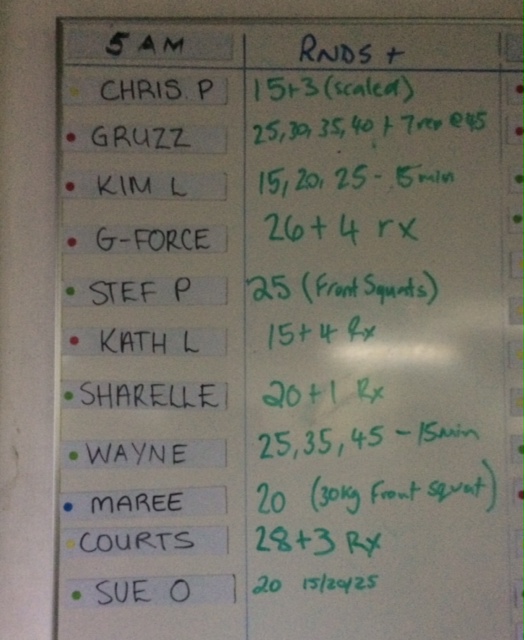 5 AM RNDS +
CHRIS. P 15+3 (scaled)
GRUZZ 25, 30, 35, 40 + 7 rep @45
KIM L 15, 20, 25 - 5min
G-FORCE 26 + 4 rx
STEF P 25 (Front Squats)
KATH L 15+4 Rx
SHARELLE 20+1 Rx
WAYNE 25, 35, 45 - 15min
MAREE 20 (30kg Front squat)
COURTS 28+3 Rx
SUE O 20 15/20/25